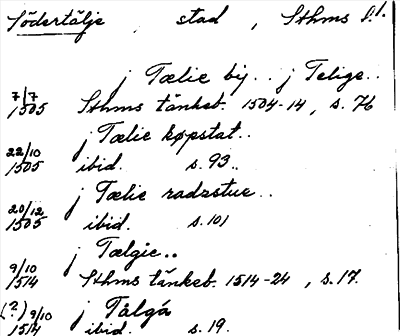 Södertälje , stad , Sthms l.l.
j Tælie bij.. j Telige..
7/7 1505 Sthms tänkeb. 1504-14, s. 76
j Tælie køpstat..
22/10 1505 ibid. s. 93..
j Tælie radzstue..
20/12 1505 ibid. s. 101
j Tælgie..
9/10 1514 Sthms tänkeb. 1514-24, s. 17.
j Tålgá
(?) 9/10 1514 ibid. s. 19.